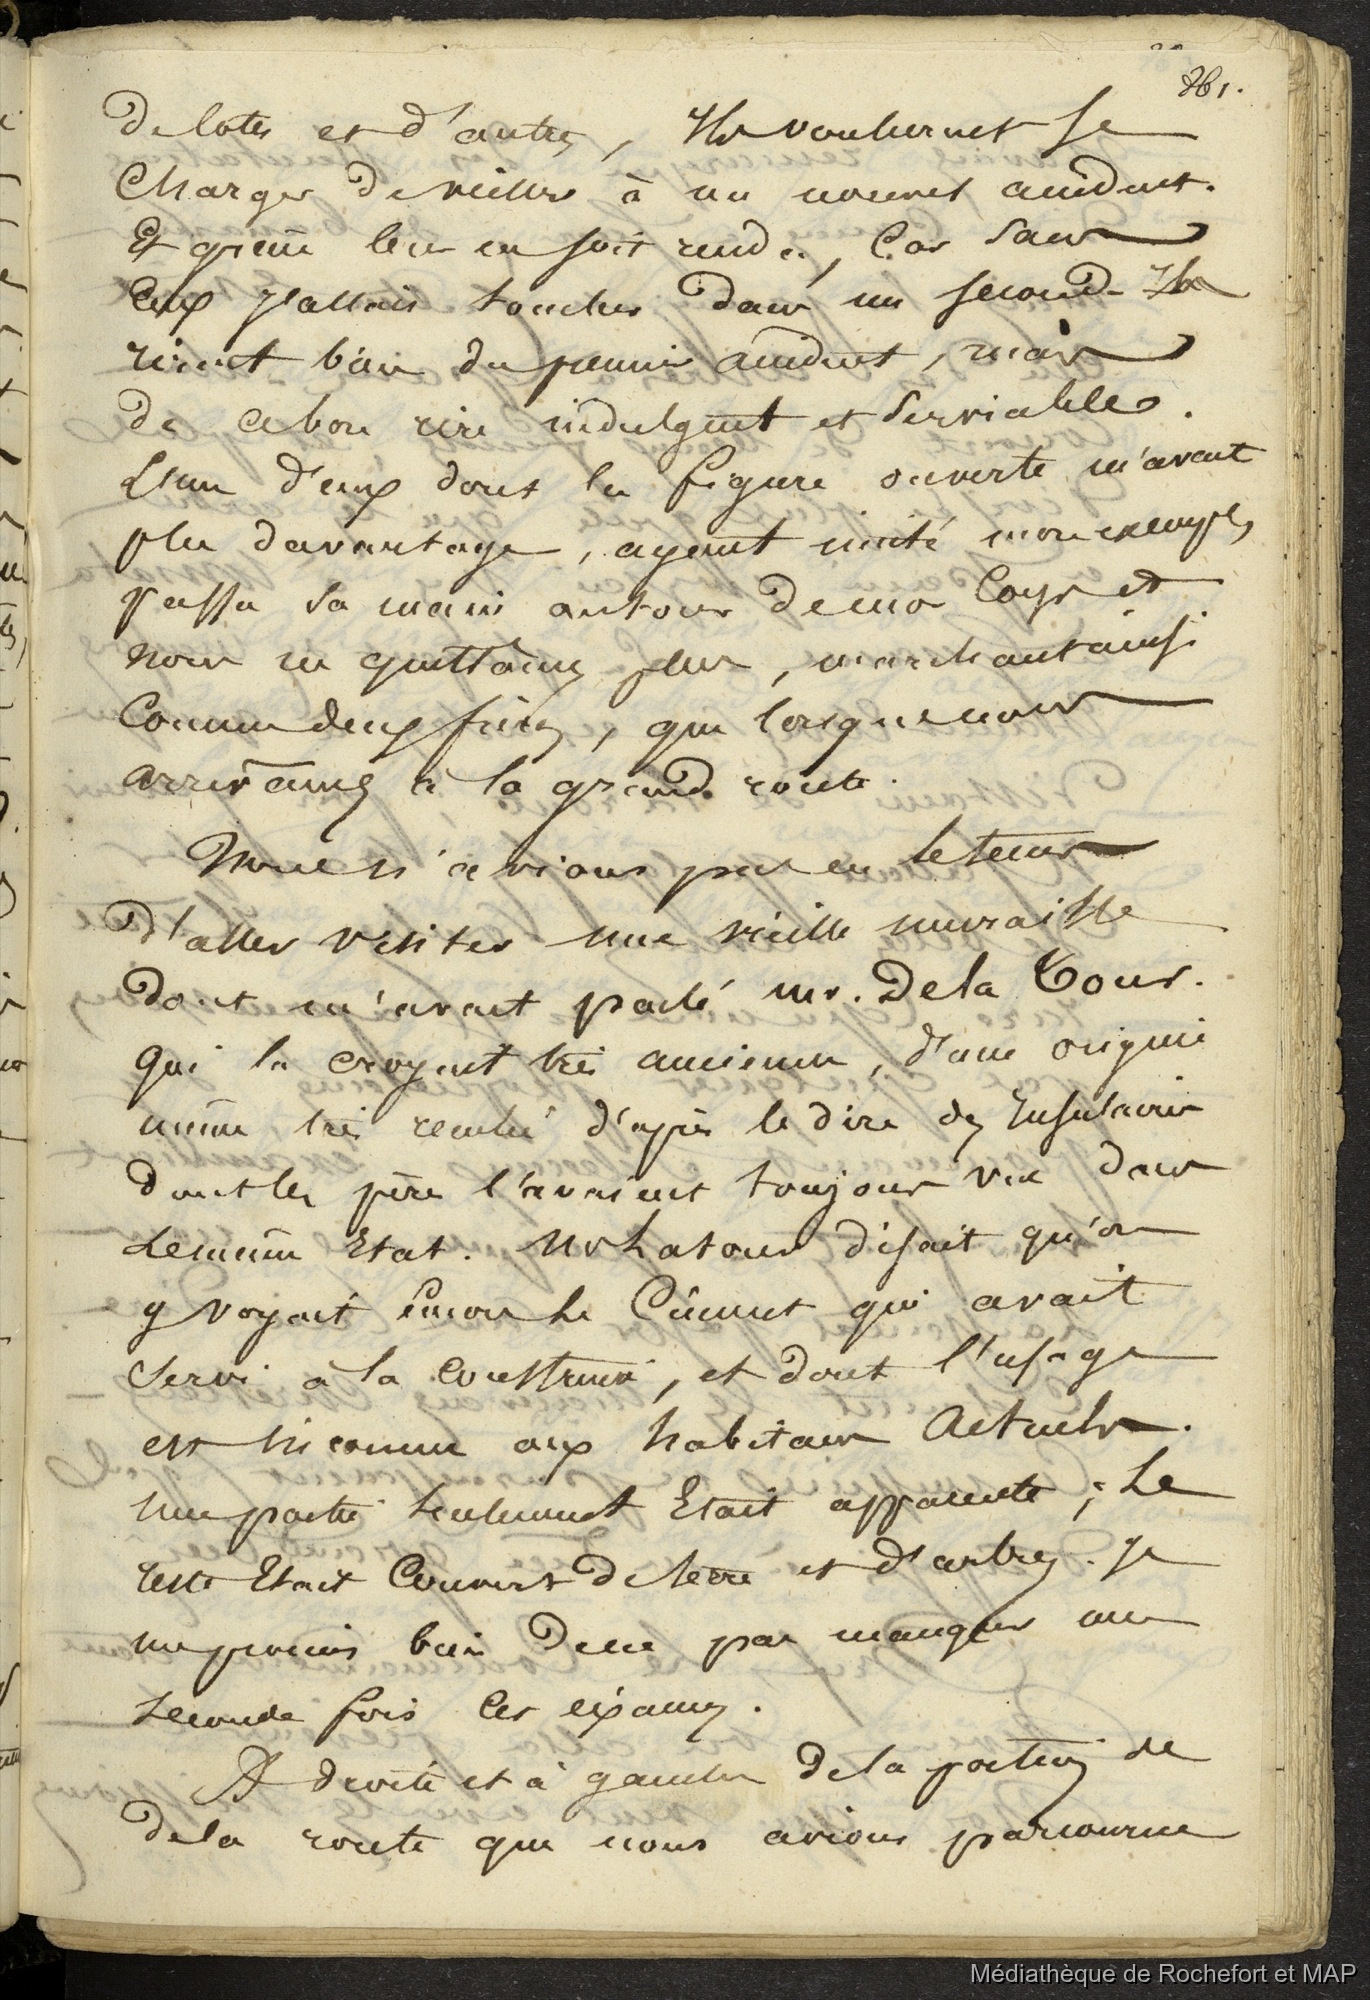 361.
De lotes et d'autres, Ils voulurent se
Charger de veiller à un nouvel accident.
Et grâce leur en soit rendue, Car sans
Eux j'allais tomber dans un second. Ils
rirent bien du premier accident, mais
de ce bon rire indulgent et Serviable.
L'un d'eux dont la figure ouverte m'avait
plu davantage, ayant imité mon exemple,
passa sa main autour de mon Corps et
nous ne quittames plus, marchant ainsi
Comme deux frères, que lorsque nous
arrivames à la grande route.
Nous n'avions pas eu le tems
D'aller visiter une vieille muraille
dont m'avait parlé mr. De la Tour.
Qui la croyait très ancienne, d'une origine
même très reculée d'après le dire des Insulaires
dont les pères l'avaient toujours vue dans
le même Etat. Mr Latour disait qu'on
y voyait Encore le Ciment qui avait
servi à la construire, et dont l'usage
est inconnu aux habitans Actuels.
Une partie seulement Etait apparente ; le
reste Etait Couvert de terre et d'arbres. Je
me promis bien de ne pas manquer une
seconde fois cet examen.
A droite et à gauche de la portion de
de la route que nous avions parcourue
Médiathèque de Rochefort et MAP